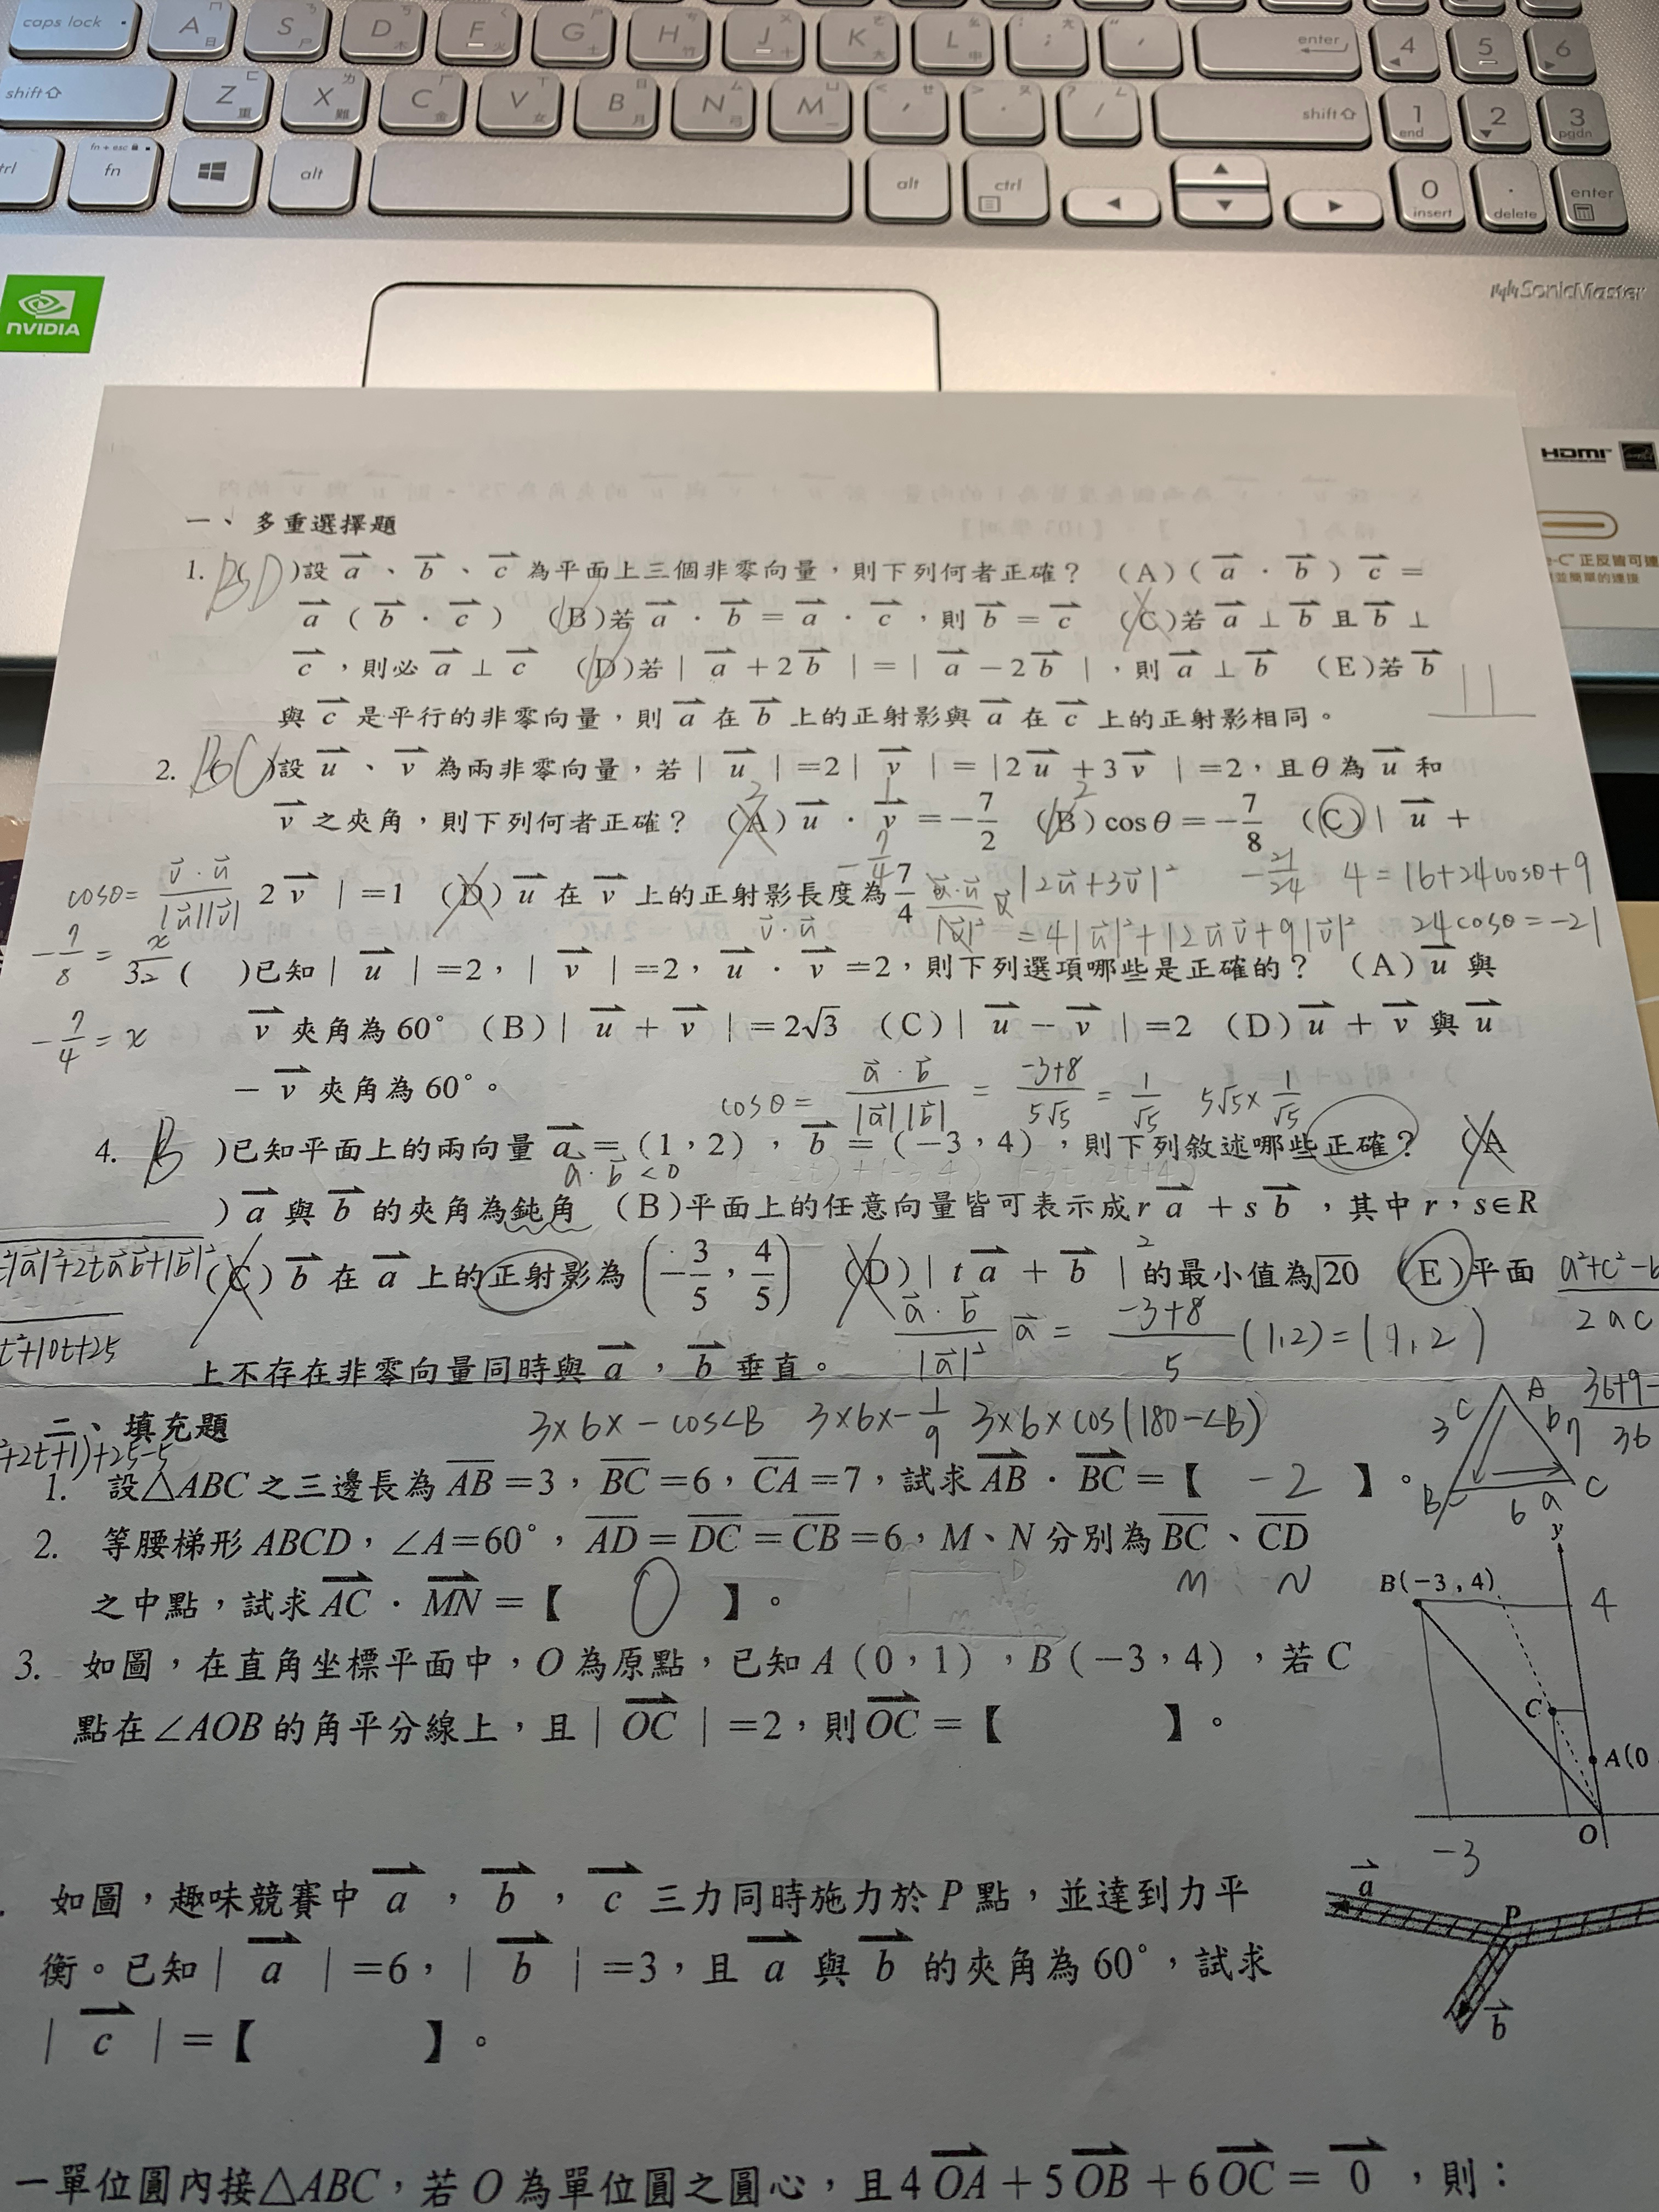 caps lock A S D F G H J K L ; , enter 4 5 6
shift Z X C V B N M , . / shift 1 end 2 3 pgdn
fn + esc
fn alt alt ctrl 0 insert . delete enter
NVIDIA
SonicMaster
HDMI
正反皆可連
並簡單的連接
一、多重選擇題
1. BD )設 a⃗、b⃗、c⃗ 為平面上三個非零向量,則下列何者正確? (A)(a⃗ · b⃗) c⃗ =
a⃗ (b⃗ · c⃗) (B)若 a⃗ · b⃗ = a⃗ · c⃗,則 b⃗ = c⃗ (C)若 a⃗ ⊥ b⃗ 且 b⃗ ⊥
c⃗,則必 a⃗ ⊥ c⃗ (D)若 | a⃗ + 2b⃗ | = | a⃗ − 2b⃗ |,則 a⃗ ⊥ b⃗ (E)若 b⃗
與 c⃗ 是平行的非零向量,則 a⃗ 在 b⃗ 上的正射影與 a⃗ 在 c⃗ 上的正射影相同。
2. BC )設 u⃗、v⃗ 為兩非零向量,若 | u⃗ | =2 | v⃗ | = |2u⃗ + 3v⃗ | =2,且 θ 為 u⃗ 和
2 1 2
v⃗ 之夾角,則下列何者正確? (A) u⃗ · v⃗ = −7/2 (B) cosθ = −7/8 (C) | u⃗ +
−7/4
2v⃗ | =1 (D) u⃗ 在 v⃗ 上的正射影長度為 7/4
cosθ = v⃗·u⃗/|u⃗||v⃗|
|2u⃗+3v⃗|²
−21/24 4 = 16+24cosθ+9
v⃗·u⃗ = 4|u⃗|²+12u⃗v⃗+9|v⃗|² 24cosθ = −21
−7/8 = x/2
−7/4 = x
3. ( )已知 | u⃗ | =2,| v⃗ | =2,u⃗ · v⃗ =2,則下列選項哪些是正確的? (A) u⃗ 與
v⃗ 夾角為 60° (B) | u⃗ + v⃗ | =2√3 (C) | u⃗ − v⃗ | =2 (D) u⃗ + v⃗ 與 u⃗
− v⃗ 夾角為 60°。
cosθ = a⃗·b⃗/|a⃗||b⃗| = −3+8/5√5 = 1/√5 5√5×1/√5
4. B )已知平面上的兩向量 a⃗ = (1,2),b⃗ = (−3,4),則下列敘述哪些正確? (A
a⃗·b⃗<0
) a⃗ 與 b⃗ 的夾角為鈍角 (B)平面上的任意向量皆可表示成 r a⃗ + s b⃗,其中 r,s∈R
(C) b⃗ 在 a⃗ 上的正射影為 (−3/5, 4/5) (D) | t a⃗ + b⃗ |² 的最小值為 20 (E)平面
|a⃗|²+2ta⃗b⃗+|b⃗|²
t²+10t+25
a⃗·b⃗/|a⃗|² a⃗ = −3+8/5 (1,2) = (1,2)
上不存在非零向量同時與 a⃗,b⃗ 垂直。
二、填充題
3×6×−cos∠B 3×6×−1/9 3×6×cos(180−∠B)
+2t+1)+25−5
1. 設△ABC 之三邊長為 AB=3,BC=6,CA=7,試求 AB⃗ · BC⃗ =【 −2 】。
3 c A b 7 B 6 a C
2. 等腰梯形 ABCD,∠A=60°,AD=DC=CB=6,M、N 分別為 BC、CD
M N
之中點,試求 AC⃗ · MN⃗ =【 0 】。
3. 如圖,在直角坐標平面中,O 為原點,已知 A(0,1),B(−3,4),若 C
點在∠AOB 的角平分線上,且 | OC⃗ | =2,則 OC⃗ =【 】。
y
B(−3,4)
4
C
A(0
O
−3
如圖,趣味競賽中 a⃗,b⃗,c⃗ 三力同時施力於 P 點,並達到力平
衡。已知 | a⃗ | =6,| b⃗ | =3,且 a⃗ 與 b⃗ 的夾角為 60°,試求
| c⃗ | =【 】。
a⃗
P
b⃗
一單位圓內接△ABC,若 O 為單位圓之圓心,且 4OA⃗ + 5OB⃗ + 6OC⃗ = 0⃗,則: